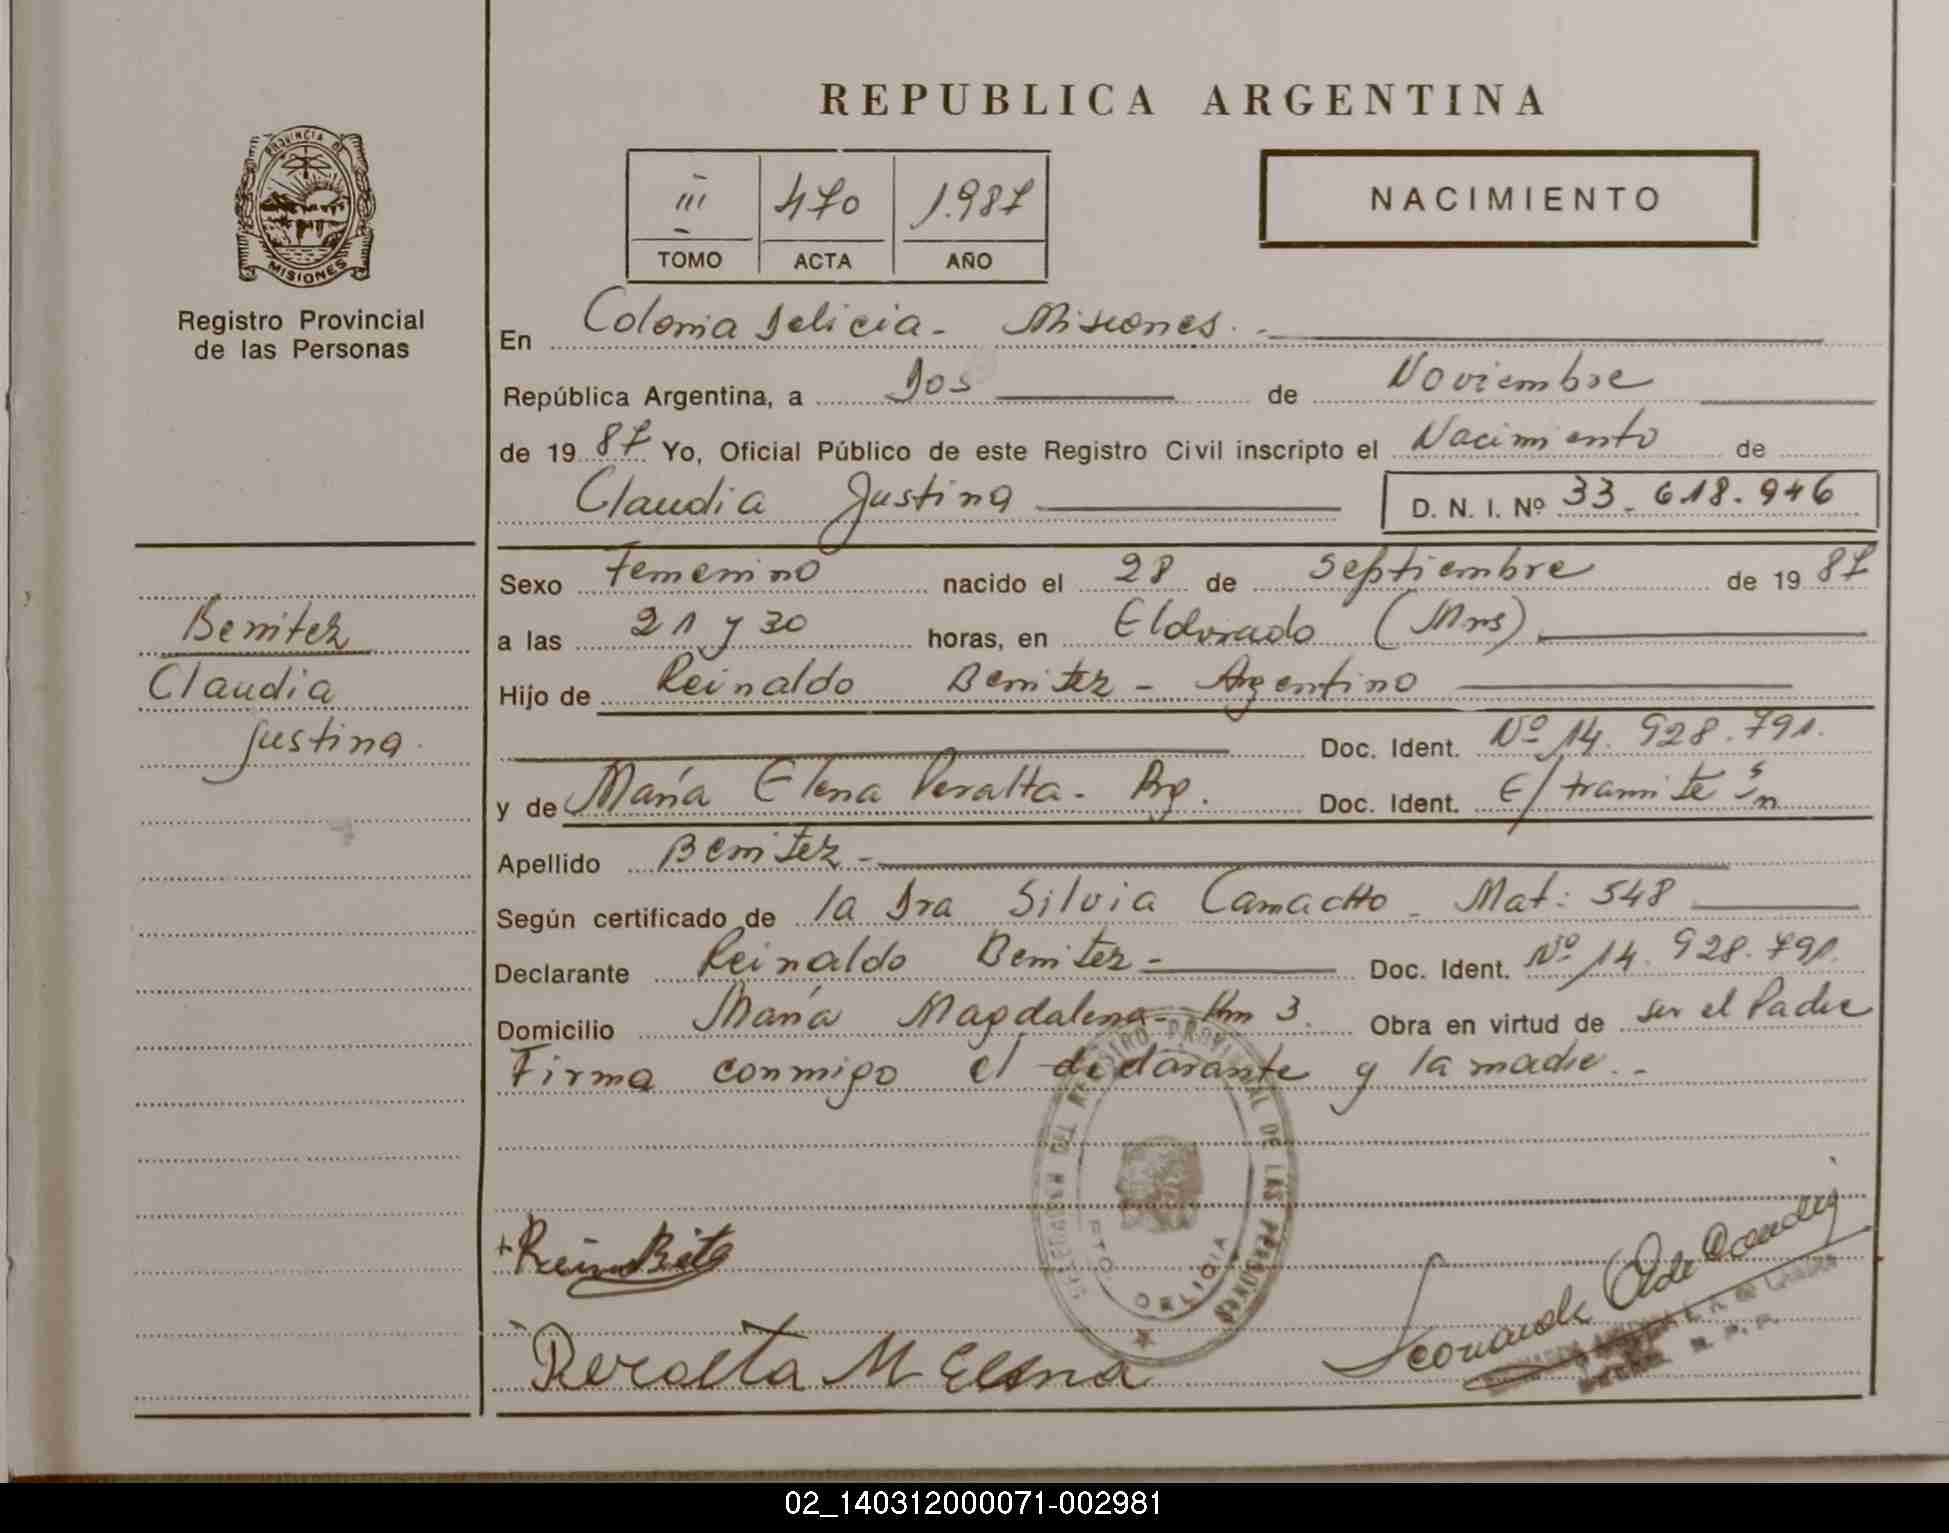 REPUBLICA ARGENTINA
PROVINCIA DE
MISIONES
Registro Provincial
de las Personas
III 470 1.987
TOMO ACTA AÑO
NACIMIENTO
En Colonia Delicia - Misiones. -
República Argentina, a Dos de Noviembre
de 19 87 Yo, Oficial Público de este Registro Civil inscripto el Nacimiento de
Claudia Justina D. N. I. Nº 33.618.946
Sexo Femenino nacido el 28 de Septiembre de 19 87
a las 21 y 30 horas, en Eldorado (Mns)
Hijo de Reinaldo Benitez - Argentino
Doc. Ident. Nº 14.928.791.
y de María Elena Peralta - Arg. Doc. Ident. E/ tramite
Apellido Benitez -
Según certificado de la Dra Silvia Camacho - Mat: 548
Declarante Reinaldo Benitez - Doc. Ident. Nº 14.928.791.
Domicilio María Magdalena - Km 3. Obra en virtud de ser el Padre
Firma conmigo el declarante y la madre. -
Benitez
Claudia
Justina.
DEL REGISTRO PROVINCIAL DE LAS PERSONAS
DELICIA
Peralta M Elena
02_140312000071-002981